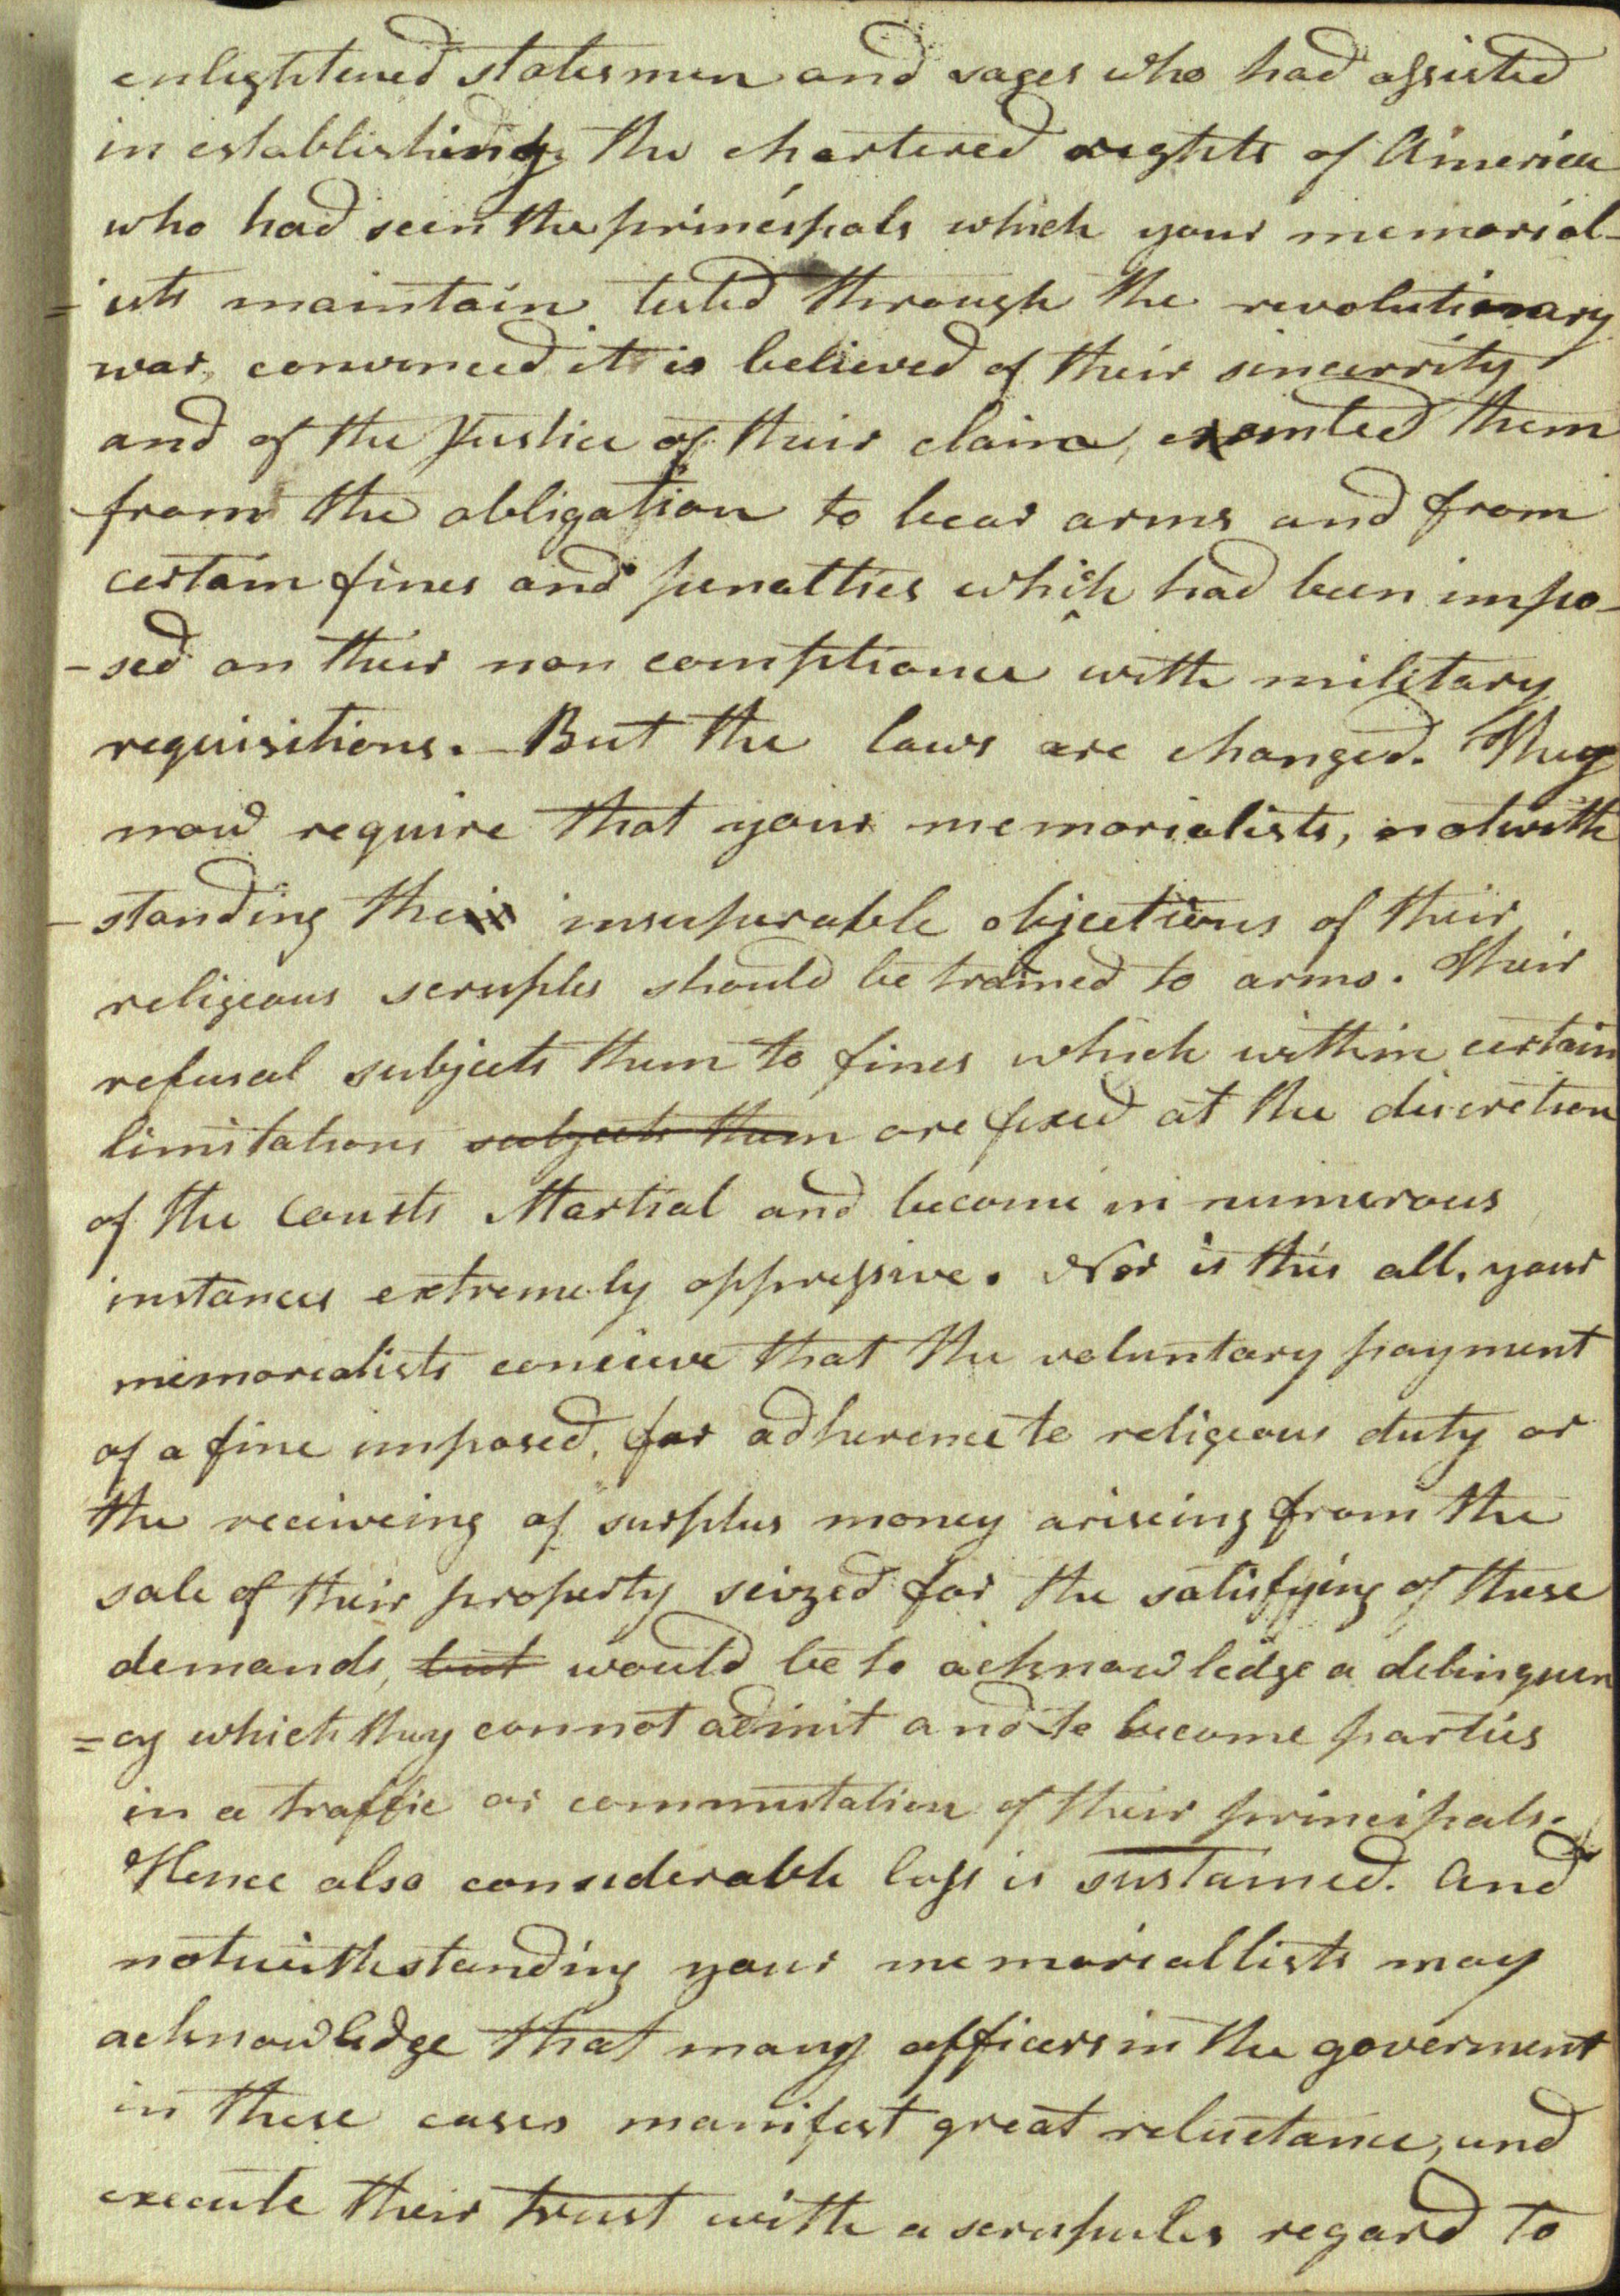 enlightened statesmen and sages who had assisted
in establishing the chartered rights of America
who had seen the principals which your memorial-
=ists maintain tested through the revolutionary
war, convinced it is believed of their sincerrity
and of the Justice of their claim, exemted them
from the obligation to bear arms and from
certain fines and penalties which had been impo-
-sed on their non compliance with military
requisitions. - But the laws are changed. They
now require that your memorialists, notwith
-standing the insuperable objections of their
religeous scruples should be trained to arms. Their
refusal subjects them to fines which within certain
limitations subjects them are fixed at the discretion
of the Courts Martial and become in numerous
instances extremely oppressive. Nor is this all, your
memorealists conceive that the voluntary payment
of a fine imposed, for adherence to religeous duty or
the receiveing of surplus money ariseing from the
sale of their property seized for the satisfying of these
demands, but would be to acknowledge a delinquen
=cy which they connot admit and to become parties
in a traffic or commutation of their principals.
Hence also considerable loss is sustained. And
notwithstanding your memoriallists may
acknowledge that many officers in the goverment
in these cases manifest great reluctance, and
execute their trust with a scrupules regard to